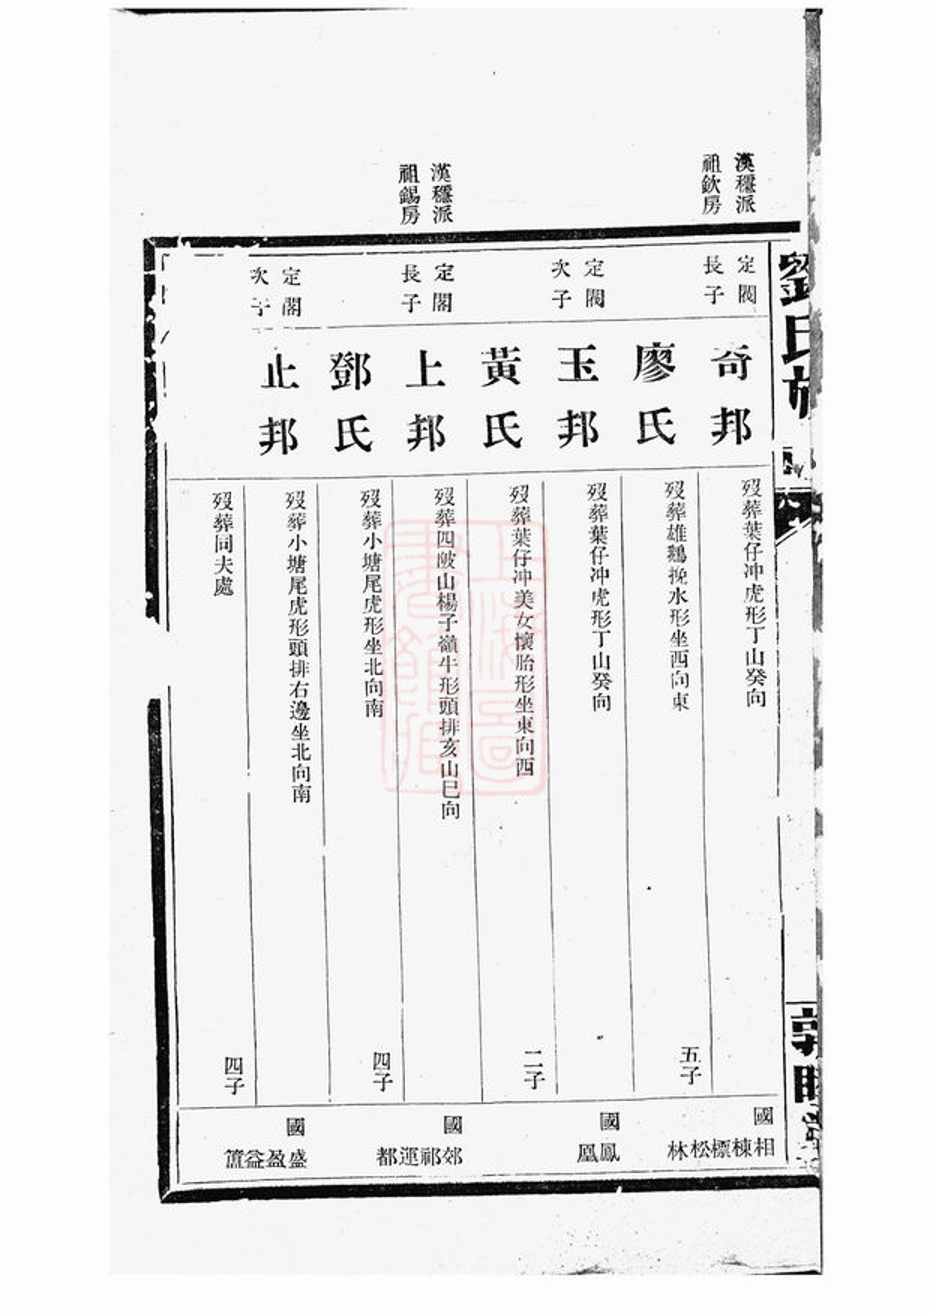 劉氏族
漢穩派
祖欽房
定閥
長子
奇邦
歿葬葉仔冲虎形丁山癸向
國
相棟標松林
廖氏
歿葬雄鷄挽水形坐西向東
五子
定閥
次子
玉邦
歿葬葉仔冲虎形丁山癸向
國
鳳凰
黃氏
歿葬葉仔冲美女懷胎形坐東向西
二子
漢穩派
祖錫房
定閣
長子
上邦
歿葬四陂山楊子嶺牛形頭排亥山巳向
國
郊祁運都
鄧氏
歿葬小塘尾虎形坐北向南
四子
定閣
次子
止邦
歿葬小塘尾虎形頭排右邊坐北向南
國
盛盈益簠
歿葬同夫處
四子
上海圖書館藏